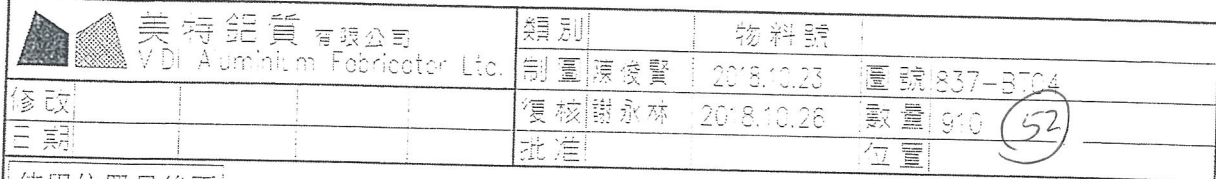 美特鋁質 有限公司
VDi Aluminium Fabricator Ltc.
類別 物料號
制圖 陳俊賢 2018.10.23 圖號 837-BT04
修改 復核 謝永林 2018.10.26 數量 910 52
日期 批准 位置